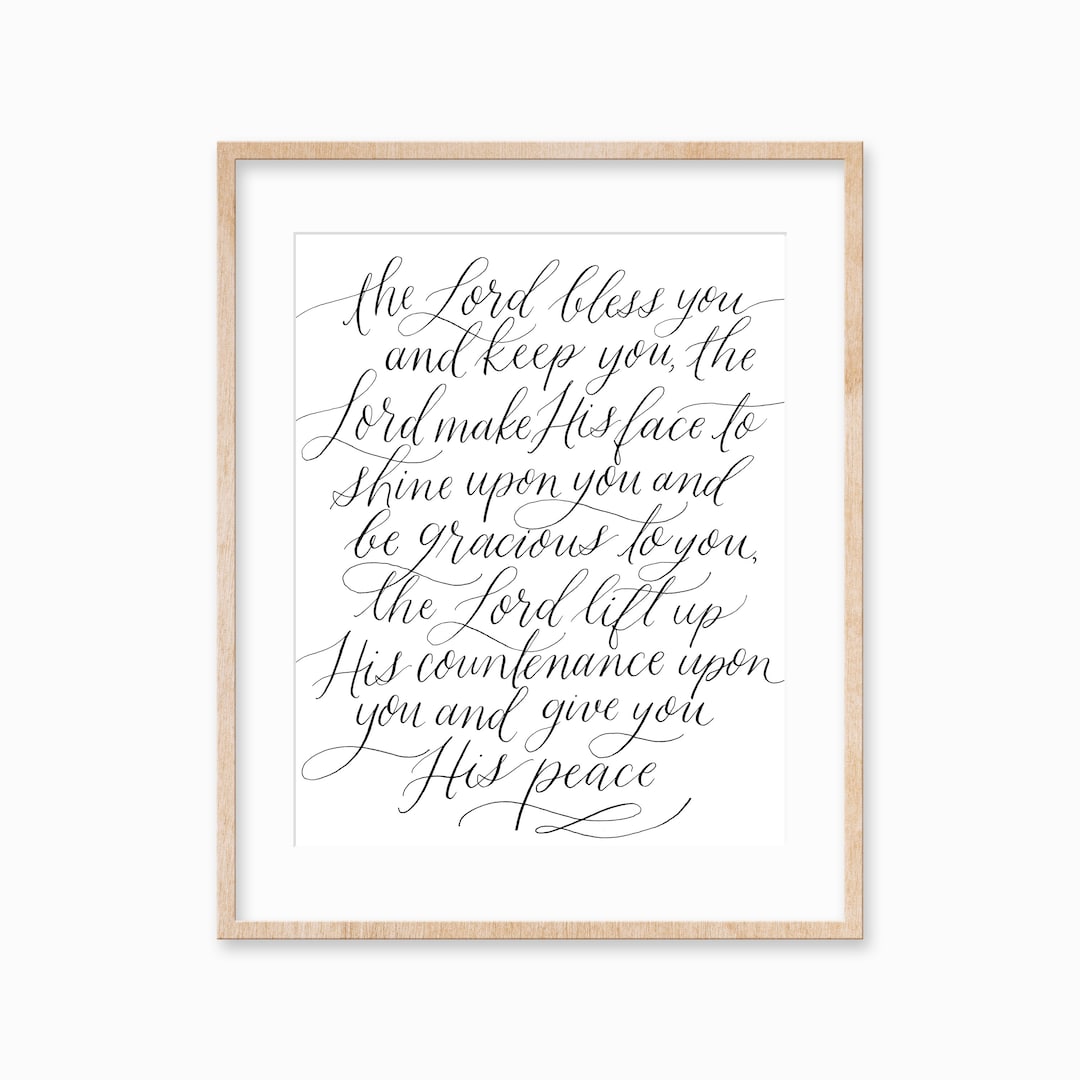 the Lord bless you
and keep you, the
Lord make His face to
shine upon you and
be gracious to you,
the Lord lift up
His countenance upon
you and give you
His peace